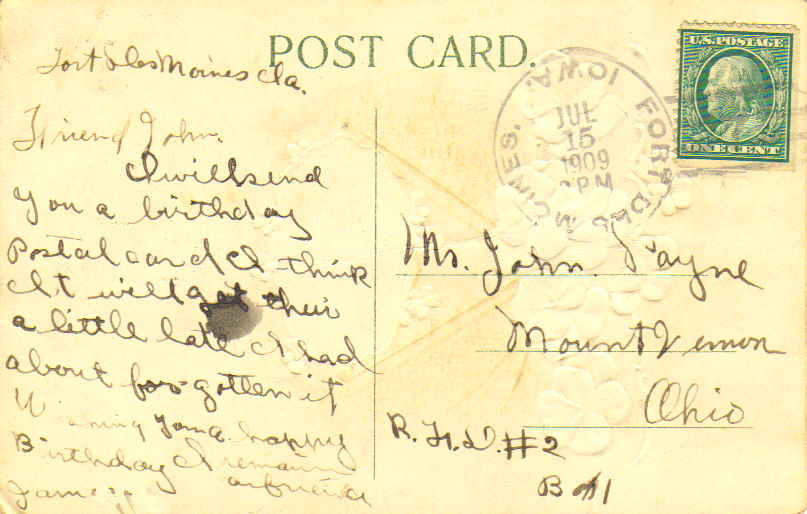 POST CARD.
Fort Des Moines Ia.
Friend John.
I will send
you a birthday
Postal card I think
It will get their
a little late I had
about forgotten it
Wishing you a happy
Birthday I remain
a friend
FORT DES MOINES, IOWA.
JUL
15
1909
PM
U.S. POSTAGE
ONE CENT
Mr. John. Payne
Mount Vernon
Ohio
R.F.D. #2